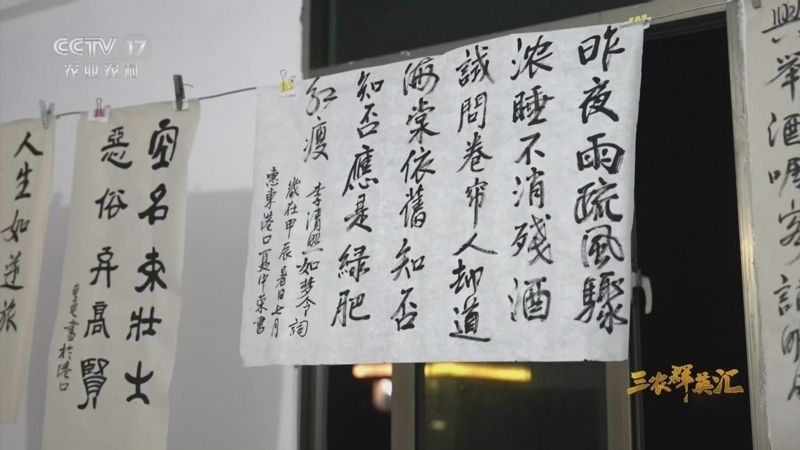 CCTV 17
农业农村
興举酒
昨夜雨疏風驟
浓睡不消残酒
試問卷帘人却道
海棠依舊知否
知否應是緑肥
红瘦
李清照如梦令詞
歲在甲辰暑日七月
惠東港口
書
空名束壯士
惡俗弃高賢
書於港口
人生如逆旅
三农群英汇